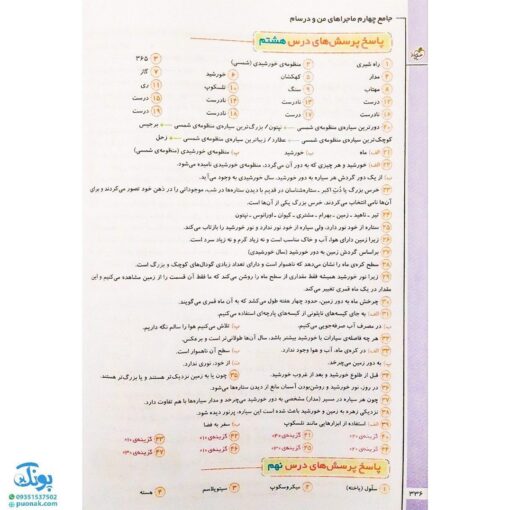 جامع چهارم ماجراهای من و درسام
پاسخ پرسش‌های درس هشتم
۱ راه شیری ۲ منظومه‌ی خورشیدی (شمسی) ۳ ۳۶۵
۴ مدار ۵ کهکشان ۶ خورشید ۷ گاز
۸ مهتاب ۹ سنگ ۱۰ تلسکوپ ۱۱ ری
۱۲ درست ۱۳ نادرست ۱۴ نادرست ۱۵ درست
۱۶ نادرست ۱۷ درست ۱۸ نادرست ۱۹ درست
۲۰ دورترین سیاره‌ی منظومه‌ی شمسی نپتون / بزرگ‌ترین سیاره‌ی منظومه‌ی شمسی برجیس
کوچک‌ترین سیاره‌ی منظومه‌ی شمسی عطارد / زیباترین سیاره‌ی منظومه‌ی شمسی زحل
۲۱ الف) ماه ب) خورشید پ) منظومه‌ی خورشیدی (منظومه‌ی شمسی)
۲۲ الف) خورشید و هر چیزی که به دور آن می‌گردد، منظومه‌ی خورشیدی نامیده می‌شود.
ب) از یک دور گردش هر سیاره به دور خورشید، سال خورشیدی به وجود می‌آید.
۲۳ خرس بزرگ یا دُبّ اکبر ـ ستاره‌شناسان در قدیم با دیدن ستاره‌ها در شب، موجوداتی را در ذهن خود تصور می‌کردند و برای
آن‌ها نامی انتخاب می‌کردند. خرس بزرگ یکی از آن‌ها است.
۲۴ تیر ـ ناهید ـ زمین ـ بهرام ـ مشتری ـ کیوان ـ اورانوس ـ نپتون
۲۵ ستاره از خود نور دارد، ولی سیاره از خود نور ندارد و نور خورشید را بازتاب می‌کند.
۲۶ زیرا زمین دارای هوا، آب و خاک مناسب است و نه زیاد گرم و نه زیاد سرد است.
۲۷ براساس گردش زمین به دور خورشید (سال خورشیدی)
۲۸ سطح کره‌ی ماه را نشان می‌دهد که ناهموار است و دارای تعداد زیادی گودال‌های کوچک و بزرگ است.
۲۹ زیرا نور خورشید همیشه فقط مقداری از سطح ماه را روشن می‌کند که ما فقط آن قسمت را از زمین مشاهده می‌کنیم و این
مقدار در یک ماه قمری تغییر می‌کند.
۳۰ چرخش ماه به دور زمین، حدود چهار هفته طول می‌کشد که به آن ماه قمری می‌گویند.
۳۱ الف) به جای کیسه‌های نایلونی از کیسه‌های پارچه‌ای استفاده می‌کنیم.
ب) در مصرف آب صرفه‌جویی می‌کنیم. پ) تلاش می‌کنیم هوا را سالم نگه داریم.
۳۲ هر چه فاصله‌ی سیارات با خورشید بیشتر باشد، سال آن‌ها طولانی‌تر است و برعکس.
۳۳ الف) در کره‌ی ماه، آب و هوا وجود ندارد. ب) سطح آن ناهموار است.
پ) به دور زمین می‌چرخد. ت) از خود، نوری ندارد.
۳۴ قبل از طلوع خورشید و بعد از غروب خورشید. ۳۵ چون یا به زمین نزدیک‌تر هستند و یا بزرگ‌تر هستند.
۳۶ در روز، نور خورشید و روشن‌بودن آسمان مانع از دیدن ستاره‌ها می‌شود.
۳۷ چون هر سیاره در مسیر (مدار) مشخصی به دور خورشید می‌چرخد و مدار سیاره‌ها با هم تفاوت دارد.
۳۸ نزدیکی زهره به زمین و خورشید باعث شده است این سیاره، پرنور دیده شود.
۳۹ الف) استفاده از ابزارهایی مانند تلسکوپ ب) سفر به فضا
پاسخ پرسش‌های درس نهم
۱ سلّول (یاخته) ۲ میکروسکوپ ۳ سیتوپلاسم ۴ هسته
۳۳۶
پونک
09351537502
puonak.com